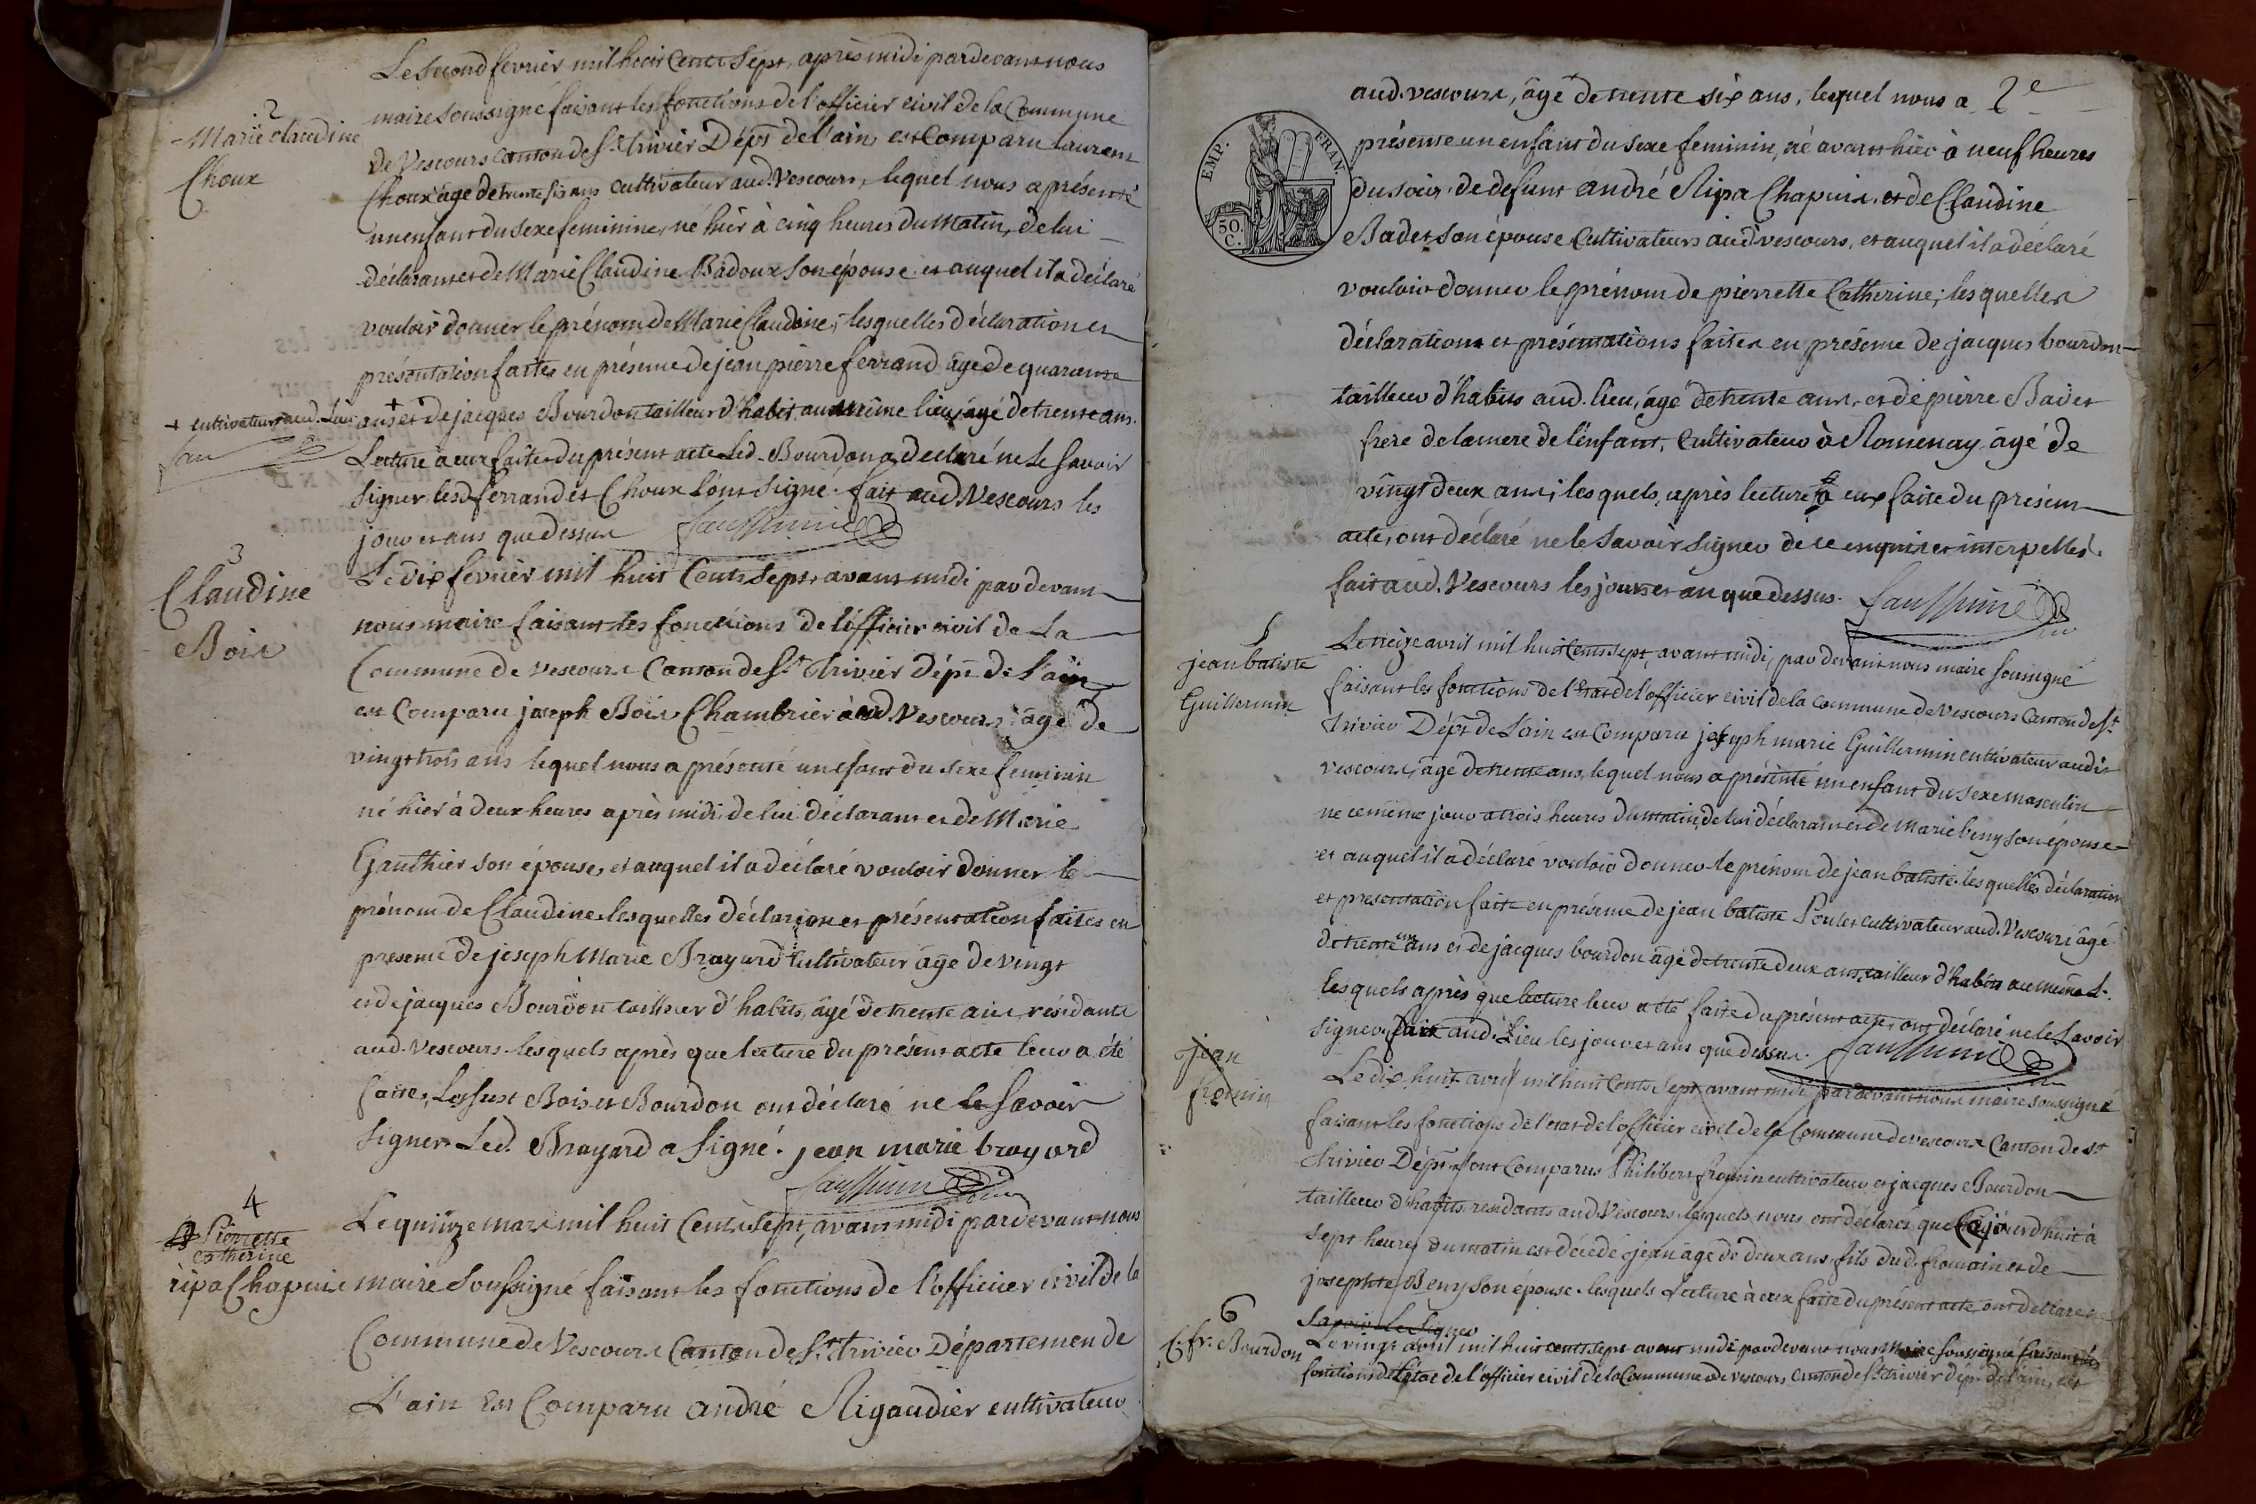 Le second fevrier mil huit Cents Sept, après midi pardevant nous
maire soussigné faisant les fonctions de l'officier civil de la Commune
2
Marie claudine
Choux
de Vescours canton de St. trivier Dépt. de l'ain, est Comparu Laurent
Choux âgé de trente six ans cultivateur aud. Vescours, lequel nous a présenté
un enfant du sexe feminine, né hier à cinq heures du matin, de lui
déclarant et de Marie Claudine Badoux son épouse et auquel il a déclaré
vouloir donner le prénom de Marie Claudine; lesquelles déclaration et
présentation faites en présence de jean pierre ferrand âgé de quarante
+ cultivateur aud. Lieu
ans + et de jacques Bourdon tailleur d'habit au même lieu, âgé de trente ans.
Lecture à eux faite du présent acte led. Bourdon a declaré ne le savoir
signer lesd ferrand et Choux l'ont signé. fait aud Vescours les
jour et ans que dessus
3
Claudine
Bois
Le dix fevrier mil huit Cents Sept, avant midi par devant
nous maire faisant les fonctions de l'officier civil de la
Commune de vescours Canton de St. Trivier Dépt. de l'ain
est Comparu joseph Bois Chambrier aud Vescours âgé de
vingt trois ans lequel nous a présenté un efant du sexe feminin
né hier à deux heures après midi de lui déclarant et de Marie
Gauthier son épouse, et auquel il a déclaré vouloir donner le
prénom de Claudine lesquelles déclarion et présentation faites en
présence de joseph Marie Brayard Cultivateur âgé de vingt
et de jacques Bourdon tailleur d'habits, âgé de trente ans, résidants
aud. Vescours. lesquels après que lecture du présent acte leur a été
faite, Bois et Bourdon ont déclaré ne le savoir
signer Led. Brayard a signé. jean marie brayard
4
Pierrette
Catherine
ripa Chapuis
Le quinze mars mil huit Cents Sept, avant midi pardevant nous
maire Soussigné faisant les fonctions de l'officier civil de la
Commune de Vescours Canton de St. trivier Département de
L'ain Est Comparu andré Rigaudier cultivateur
2e
aud. vescours, âgé de trente six ans, lequel nous a
EMP. FRAN.
50. C.
présenté un enfant du sexe feminin, né avant hier à neuf heures
du soir, de défunt andré Ripa Chapuis, et de Claudine
Badet son épouse Cultivateurs aud vescours, et auquel il a déclaré
vouloir donner le prénom de pierrette Catherine; lesquelles
déclarations et présentations faites en présence de jacques bourdon
tailleur d'habits aud. lieu, âgé de trente ans, et de pierre Badet
frere de la mere de l'enfant, Cultivateur à Romenay âgé de
vingt deux ans; lesquels, après lecture à eux faite du présent
acte, ont déclaré ne le savoir signer de ce enquis et interpellés.
fait aud. Vescours les jours et an que dessus.
5
jean batiste
Guillermin
Le treize avril mil huit Cents Sept, avant midi, par devant nous maire soussigné
faisant les fonctions de l'état de l'officier civil de la commune de Vescours Canton de St.
trivier Dépt. de L'ain est Comparu joseph marie Guillermin cultivateur audit
vescours, âgé de trente ans, lequel nous a présenté un enfant du sexe masculin
né ce même jour a trois heures du matin, de lui déclarant et de Marie beny son épouse
et auquel il a déclaré vouloir donner le prénom de jean batiste lesquelles déclaration
et presentation faite en présence de jean batiste Poulet cultivateur aud. Vescours âgé
de trente ans et de jacques bourdon âgé de trente deux ans, tailleur d'habits au même L.
lesquels après que lecture leur a été faite du présent acte, ont déclaré ne le savoir
signer. fait aud. Lieu les jour et ans que dessus.
jean
fromin
Le dix huit avril mil huit Cents Sept avant midi pardevant nous maire soussigné
faisant les fonctions de l'etat de l'officier civil de la Commune de vescours Canton de St
trivier Dépt. sont Comparus Philibert fromin cultivateur et jacques Bourdon
tailleur d'habits residants aud Vescours lesquels nous ont déclarés que Cejourdhuit à
sept heures du matin est décédé jean âgé de deux ans, fils dud. fromain et de
josephte Beny son épouse. lesquels lecture à eux faite du présent acte, ont déclaré ne
Savoir le Signer
6
C. fr. Bourdon
Le vingt avril mil huit cents sept avant midi pardevant nous Maire soussigné faisant les
fonctions de l'état de l'officier civil de la Commune de vescours Canton de St. trivier dépt. de l'ain, est